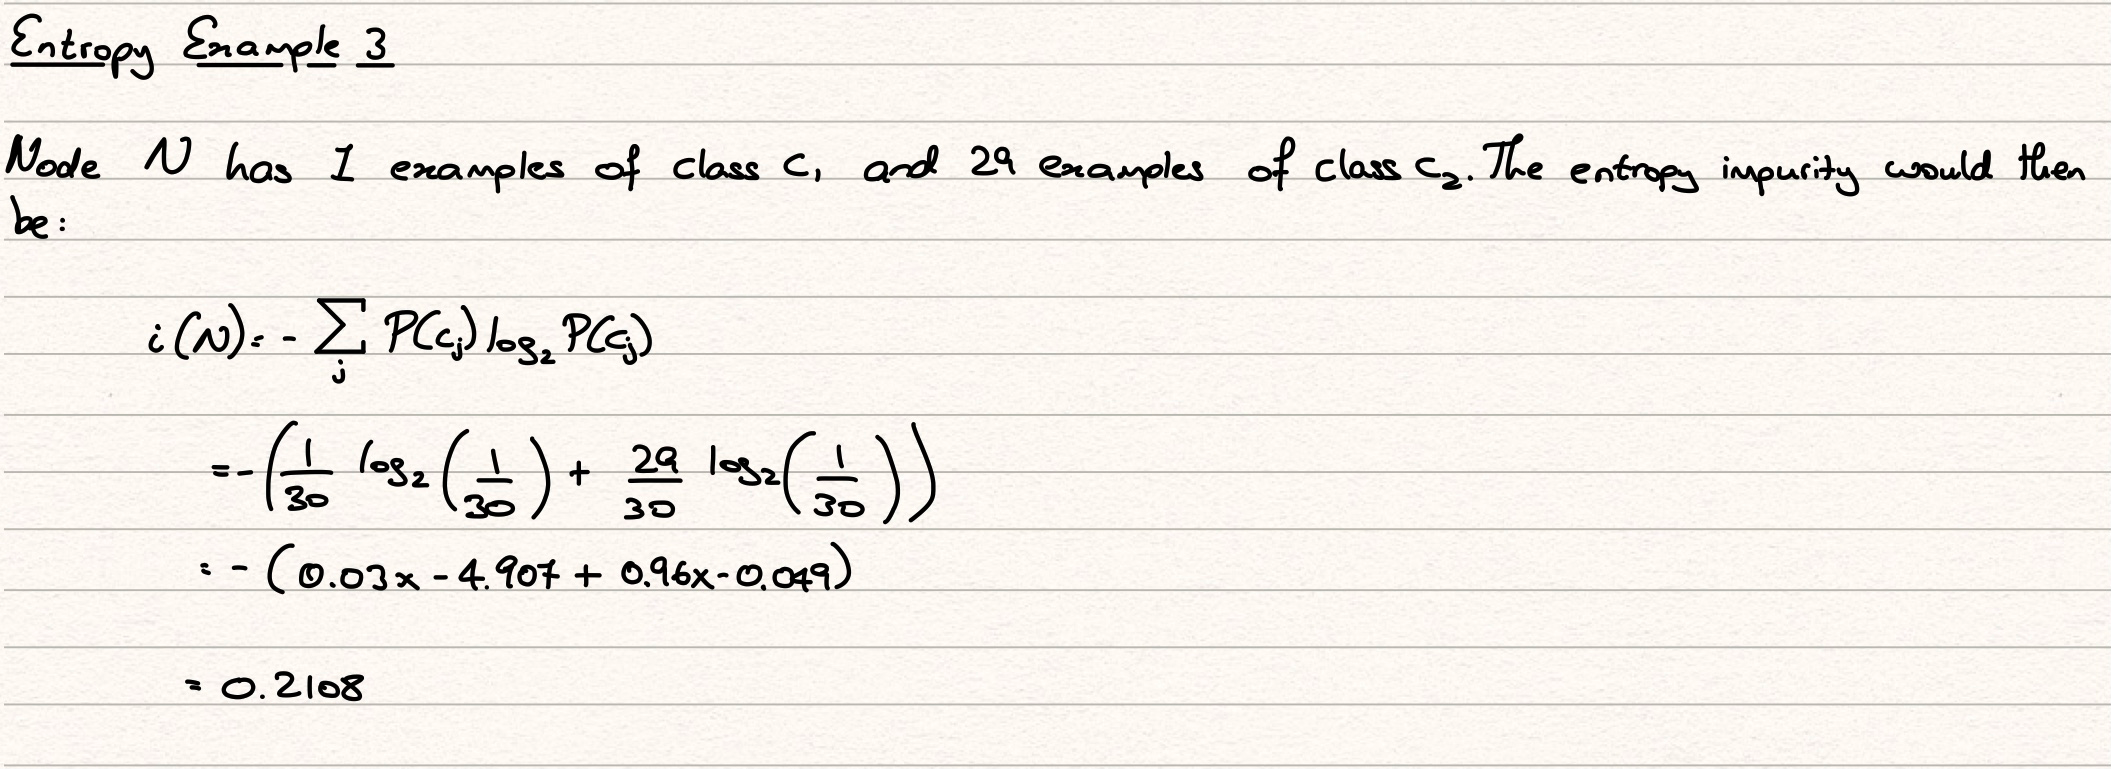 Entropy Example 3
Node N has 1 examples of class C₁ and 29 examples of class C₂. The entropy impurity would then
be:
i(N) = - ∑_j P(C_j) log₂ P(C_j)
= - (1/30 log₂ (1/30) + 29/30 log₂ (1/30))
= - (0.03 x - 4.907 + 0.96 x - 0.049)
= 0.2108